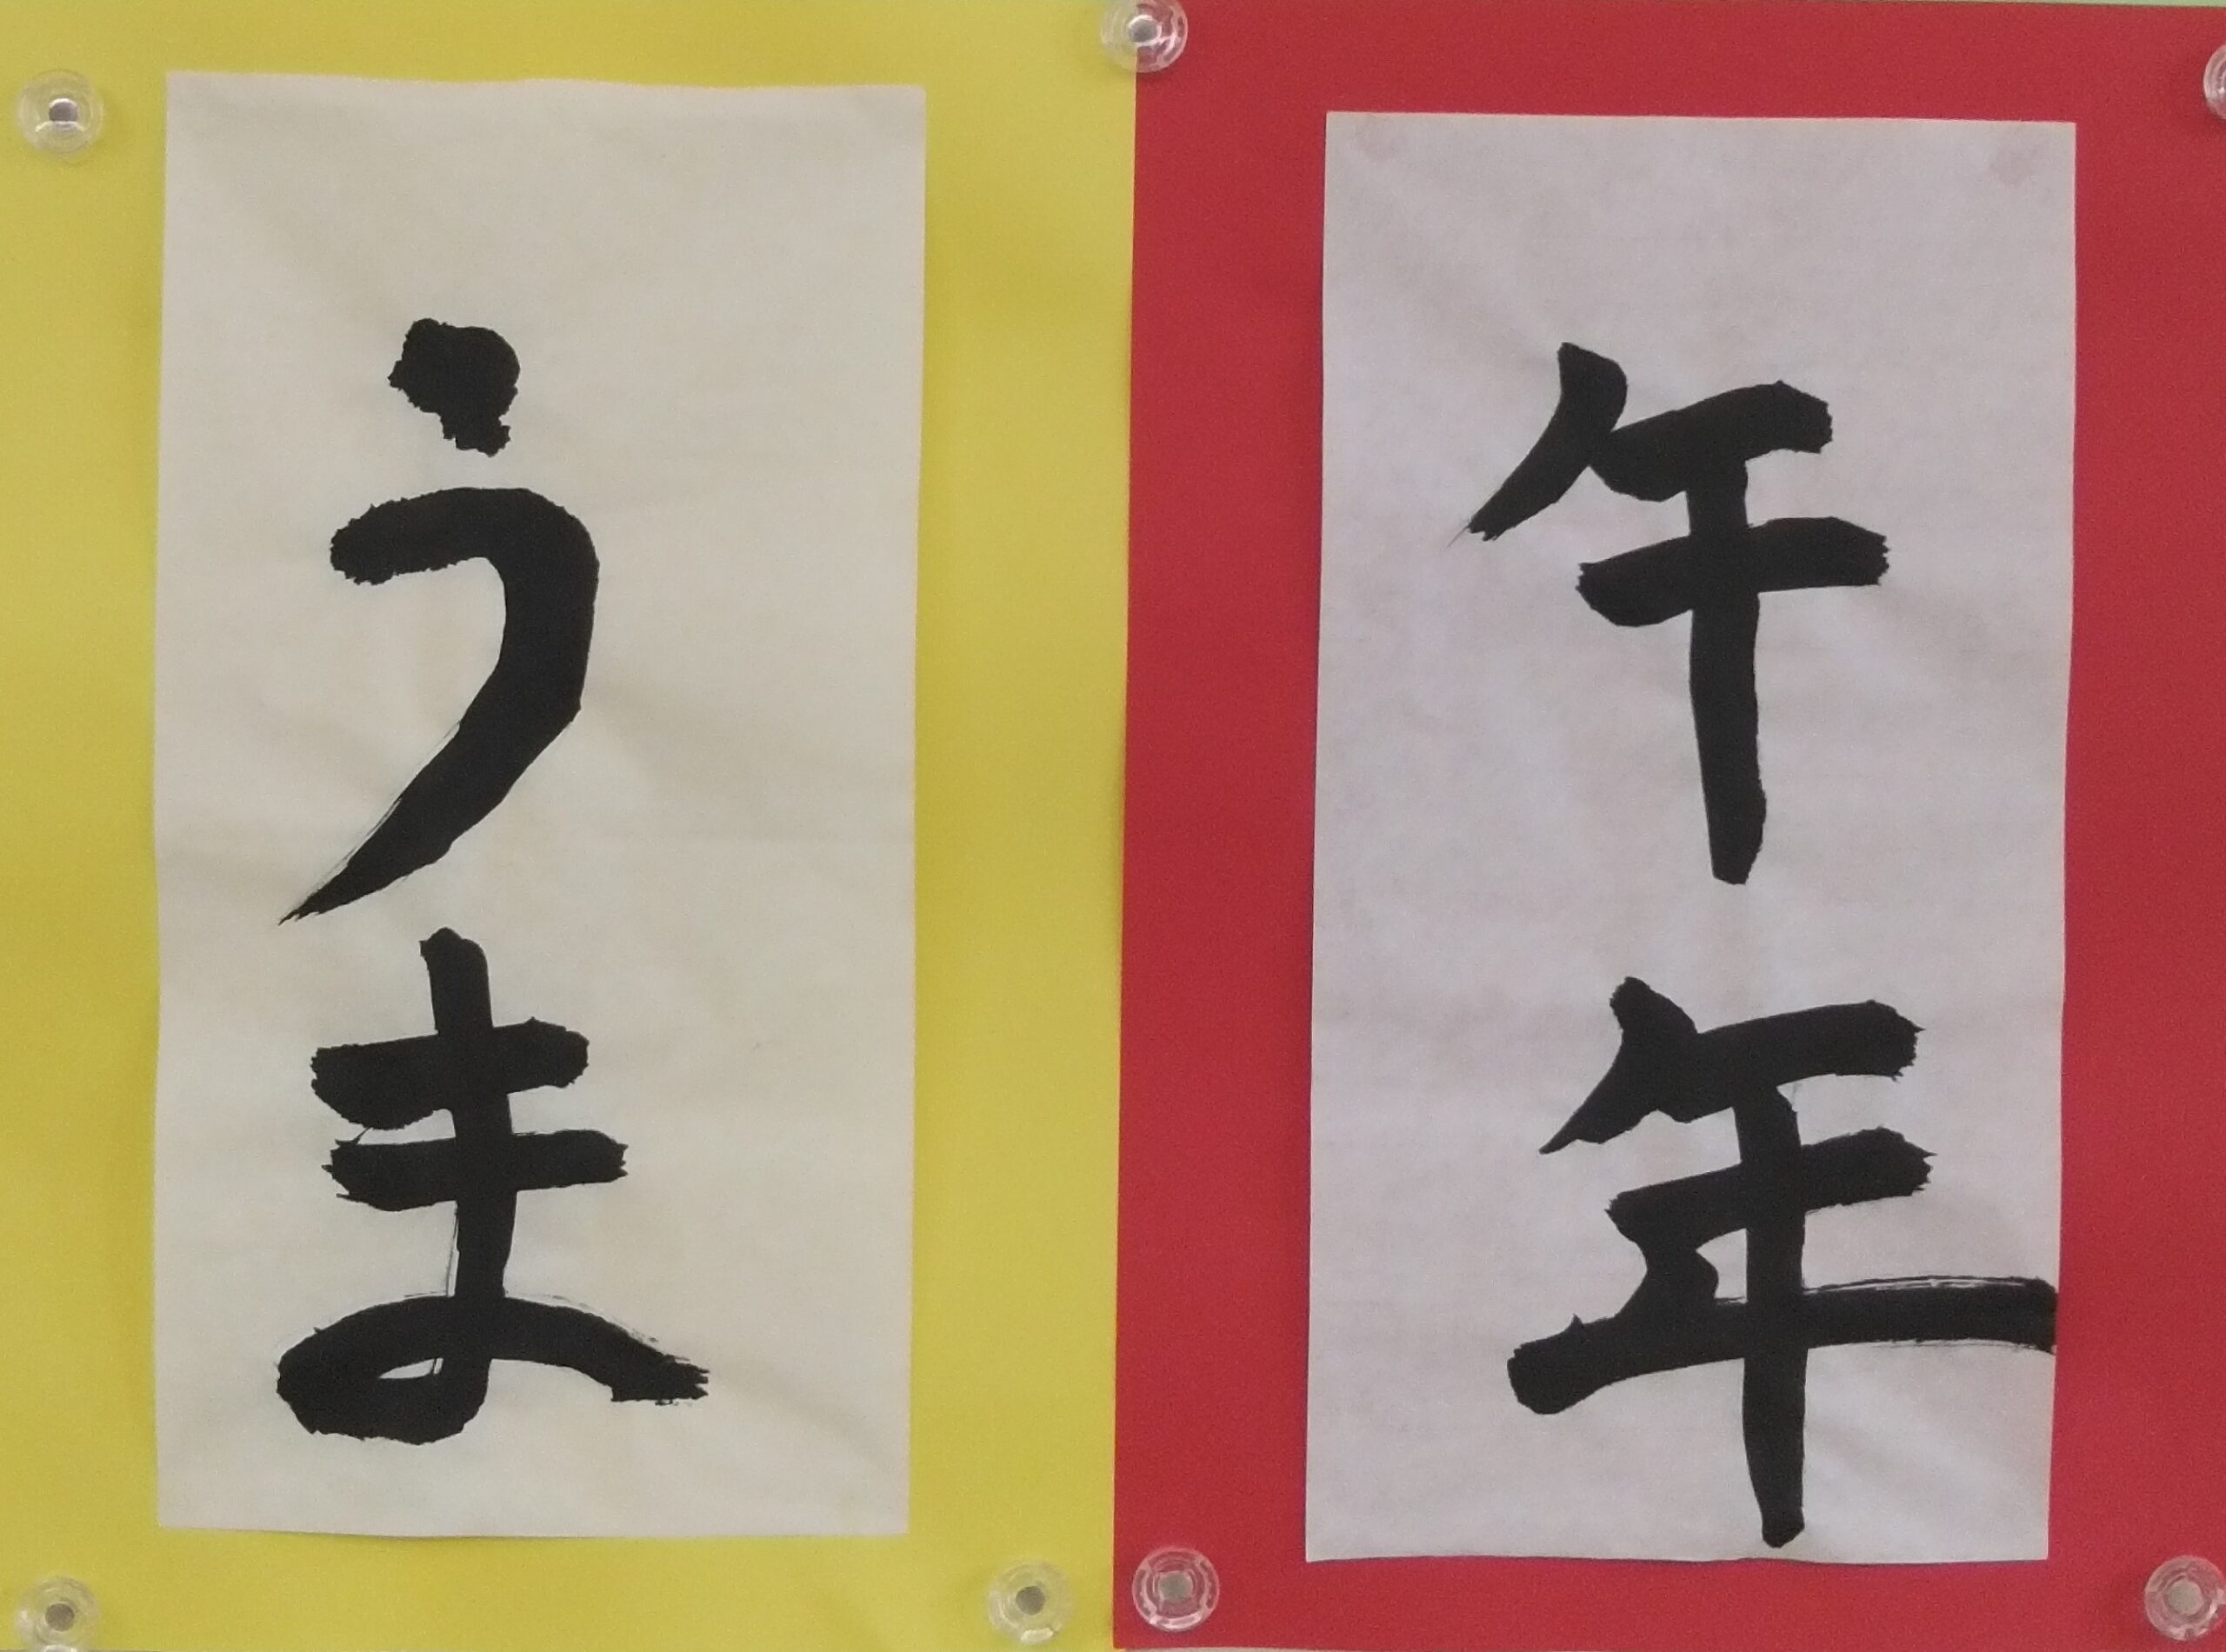 午年
うま